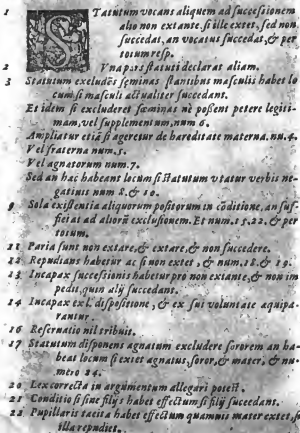 1 STatutum vocans aliquem ad successionem
alio non extante, si ille extet, sed non
succedat, an vocatus succedat, & per
totum resp.
2 Vna pars statuti declarat aliam.
3 Statutum excludēs feminas stantibus masculis habet lo
cum si masculi actualiter succedant.
Et idem si excluderet fœminas nè possent petere legiti-
mam, vel supplementum, num. 6.
Ampliatur etiā si ageretur de hæreditate materna. nu. 4.
Vel fraterna num. 5.
Vel agnatorum num. 7.
Sed an hæc habeant locum si statutum vtatur verbis ne-
gatiuis num 8. & 10.
9 Sola existentia aliquorum positorum in cōditione, an suf-
ficiat ad aliorū exclusionem. Et num. 15. 22. & per
totum.
11 Paria sunt non extare, & extare, & non succedere.
12 Repudians habetur ac si non extet, & num. 18. & 19.
13 Incapax successionis habetur pro non extante, & non im
pedit, quin alij succedant.
14 Incapax ex l. dispositione, & ex sui voluntate æquipa-
rantur.
16 Reseruatio nil tribuit.
17 Statutum disponens agnatum excludere sororem an ha-
beat locum si extet agnatus, soror, & mater, & nu-
mero 24.
20 Lex correcta in argumentum allegari potest.
21 Conditio si sine filijs habet effectum si filij succedant.
22 Pupillaris tacita habet effectum quamuis mater extet, si
illa repudiet.